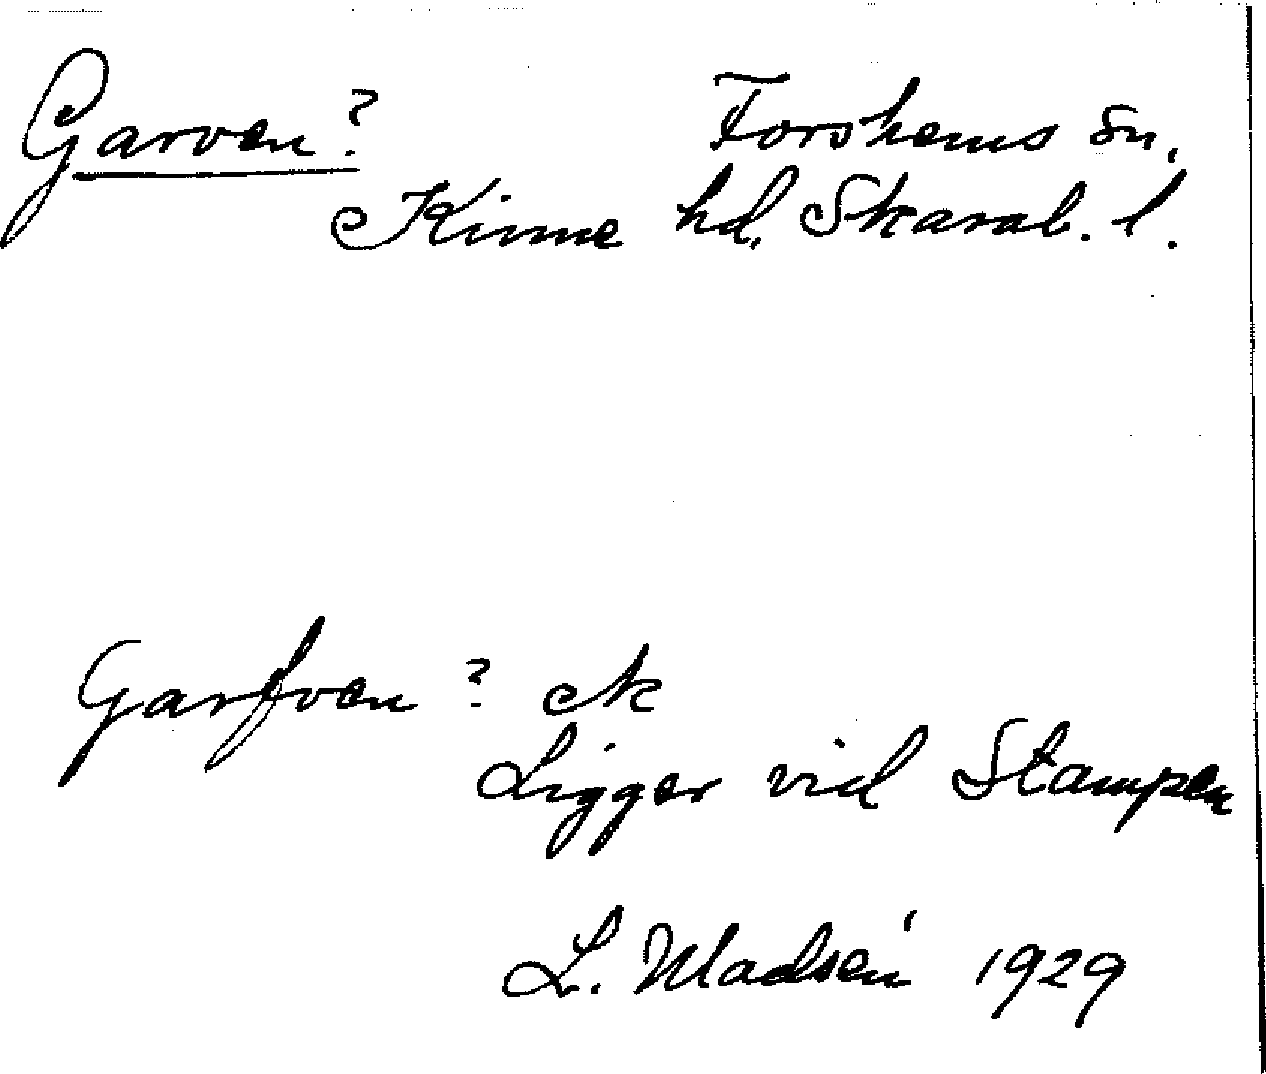 Garven? Forshems sn,
Kinne hd, Skarab. l.
Garfven ?
Ligger vid Stampen
L. Madsén 1929